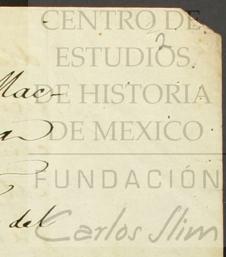 CENTRO DE
2
ESTUDIOS
Mac-
DE HISTORIA
DE MEXICO
FUNDACIÓN
del
Carlos Slim